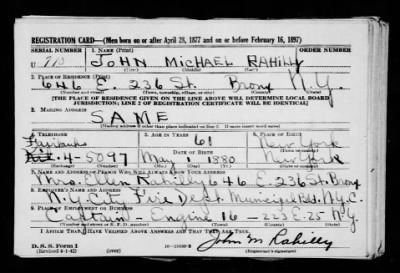 REGISTRATION CARD—(Men born on or after April 28, 1877 and on or before February 16, 1897)
SERIAL NUMBER 1. NAME (Print)
U JOHN MICHAEL RAHILLY
2. PLACE OF RESIDENCE (Print)
646 E. 236 St. Bronx N.Y.
(Number and street) (Town, township, village, or city) (County) (State)
[THE PLACE OF RESIDENCE GIVEN ON THE LINE ABOVE WILL DETERMINE LOCAL BOARD
JURISDICTION; LINE 2 OF REGISTRATION CERTIFICATE WILL BE IDENTICAL]
3. MAILING ADDRESS
SAME
[Mailing address if other than place indicated on line 2. If same insert word same]
4. TELEPHONE 5. AGE IN YEARS 6. PLACE OF BIRTH
Fairbanks 61 New York
4-5097 DATE OF BIRTH
May 1 1880 New York
(Mo.) (Day) (Yr.)
7. NAME AND ADDRESS OF PERSON WHO WILL ALWAYS KNOW YOUR ADDRESS
Mrs. Ellen Rahilly 646 E. 236 St. Bronx
8. EMPLOYER'S NAME AND ADDRESS
N.Y. City Fire Dept. Municipal Bld. N.Y.C.
9. PLACE OF EMPLOYMENT OR BUSINESS
Captain - Engine 16 - 223 E. 25 N.Y.
I AFFIRM THAT I HAVE VERIFIED ABOVE ANSWERS AND THAT THEY ARE TRUE.
D. S. S. Form 1
(Revised 4-1-42) John M Rahilly